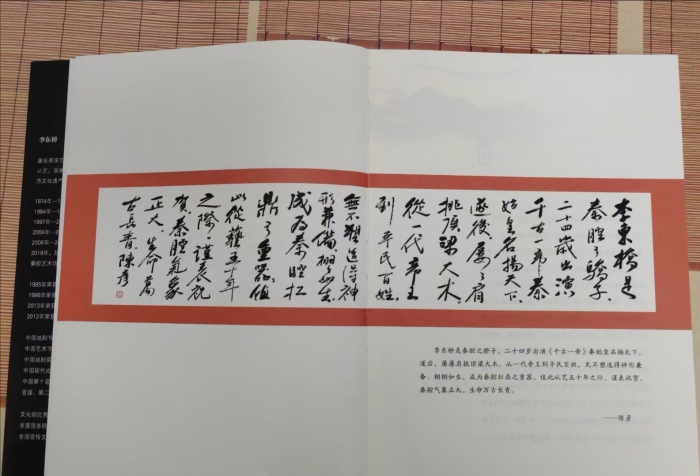 李东桥
著名表演艺
1974年—1
1984年—1
1997年—2
2004年—2
2006年—2
2019年,
秦腔艺术
1985年荣获
1986年荣获
2013年荣获
2012年荣获
中国戏剧节
中国艺术节
中国戏剧奖
中国现代戏
中国第十届
首届、第二
文化部优秀
享受国务院
全国宣传文
李東橋是
秦腔之驕子.
二十四歲出演
千古一帝秦
始皇名揚天下.
遂後,屢屢肩
挑頂梁大木.
從一代帝王
到平民百姓.
無不塑造得神
形兼備.栩栩如生.
成為秦腔扛
鼎之重器.值
此從藝五十年
之際.謹表祝
賀.秦腔氣象
正大.生命萬
古長青.陳彥
李东桥是秦腔之骄子。二十四岁出演《千古一帝》秦始皇名扬天下。
遂后,屡屡肩挑顶梁大木。从一代帝王到平民百姓,无不塑造得神形兼
备、栩栩如生,成为秦腔扛鼎之重器。值此从艺五十年之际,谨表祝贺。
秦腔气象正大,生命万古长青。
——陈彦